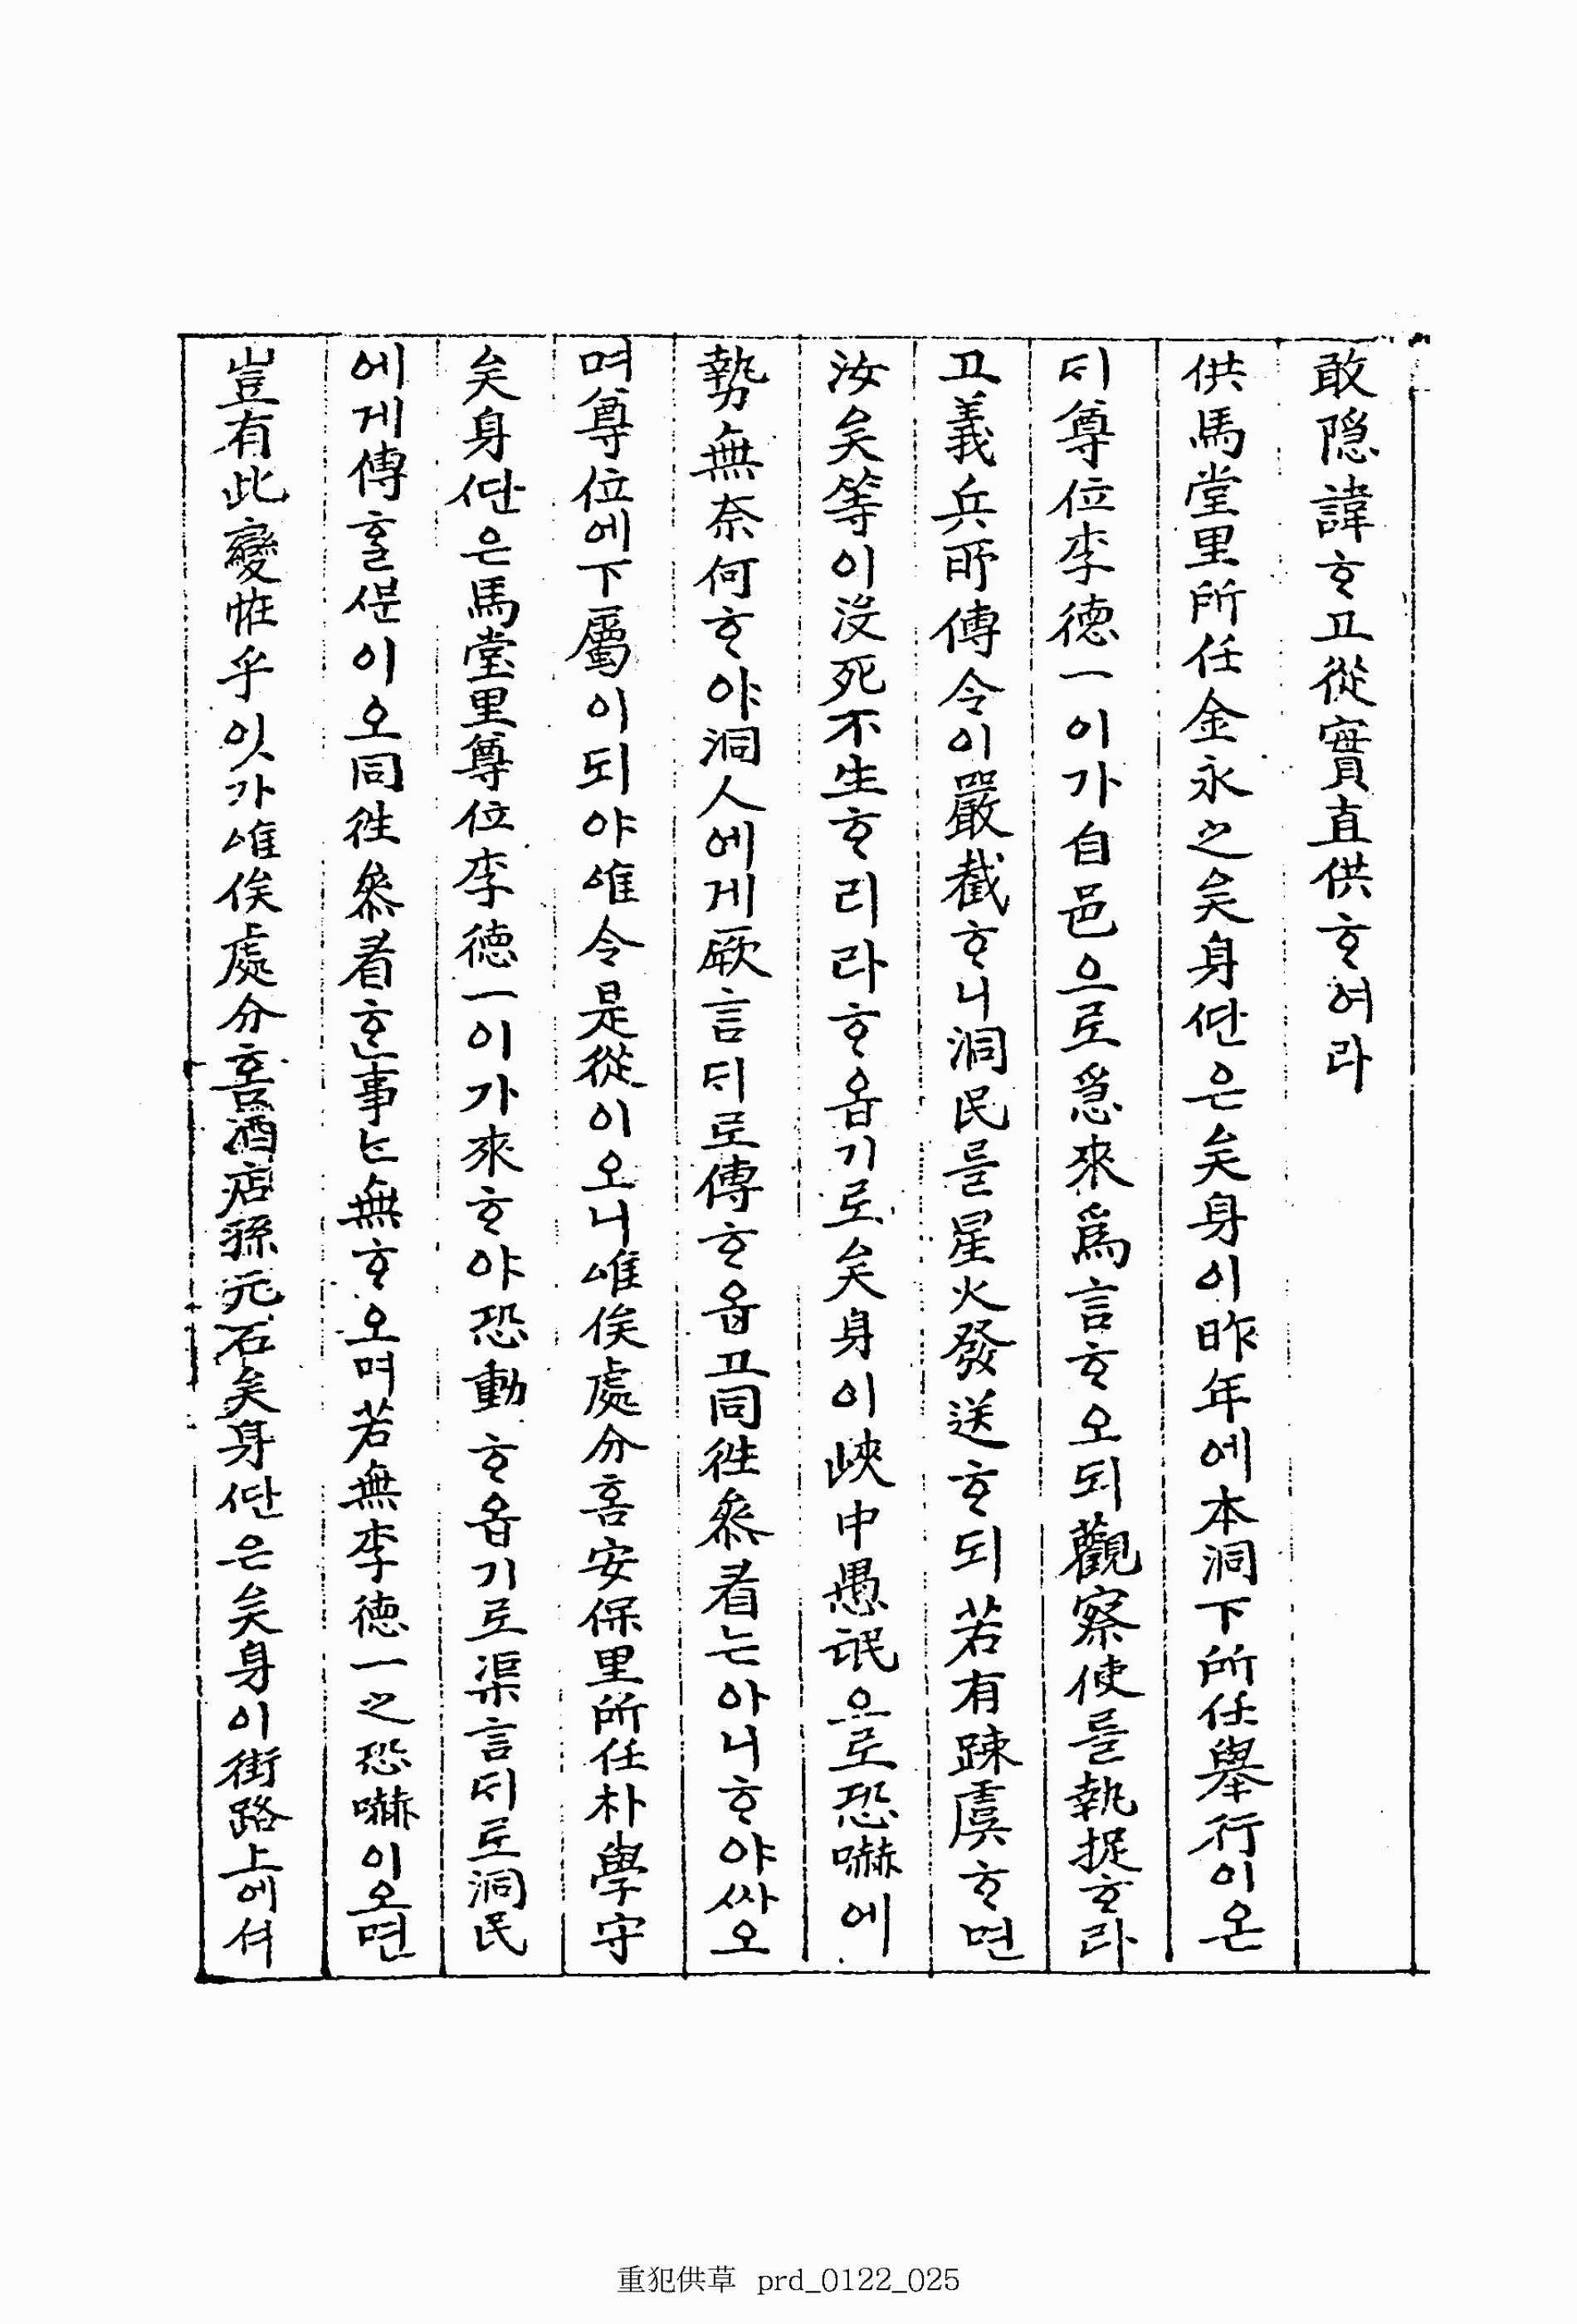 敢隐諱ᄒᆞ고從實直供ᄒᆞ여라
供馬堂里所任金永之矣身ᄯᅡᆫ은矣身이昨年에本洞下所任擧行이온
ᄃᆡ尊位李德一이가自邑으로急來爲言ᄒᆞ오되觀察使를執捉ᄒᆞ라
고義兵所傳令이嚴截ᄒᆞ니洞民를星火發送ᄒᆞ되若有踈虞ᄒᆞ면
汝矣等이沒死不生ᄒᆞ리라ᄒᆞ옵기로矣身이峽中愚氓으로恐嚇에
勢無奈何ᄒᆞ야洞人에게厥言ᄃᆡ로傳ᄒᆞ옵고同徃叅看는아니ᄒᆞ야ᄊᆞ오
며尊位에下屬이되야唯令是從이오니唯俟處分홈安保里所任朴學守
矣身ᄯᅡᆫ은馬堂里尊位李德一이가來ᄒᆞ야恐動ᄒᆞ옵기로渠言ᄃᆡ로洞民
에게傳ᄒᆞᆯᄲᅮᆫ이오同徃叅看ᄒᆞᆫ事는無ᄒᆞ오며若無李德一之恐嚇이오면
豈有此變恠乎잇가唯俟處分홈酒店孫元石矣身ᄯᅡᆫ은矣身이街路上에셔
重犯供草 prd_0122_025